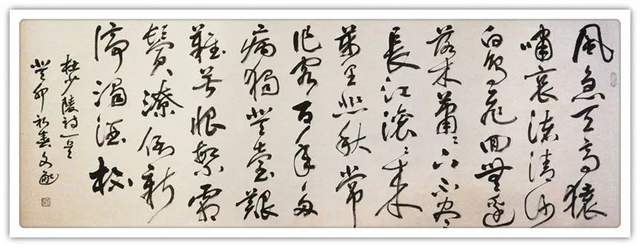 風急天高猿
嘯哀渚清沙
白鳥飛回無邊
落木蕭〻下不盡
長江滚〻来
萬里悲秋常
作客百年多
病獨登臺艱
難苦恨繁霜
鬢潦倒新
停濁酒杯
杜少陵詩一首
癸卯